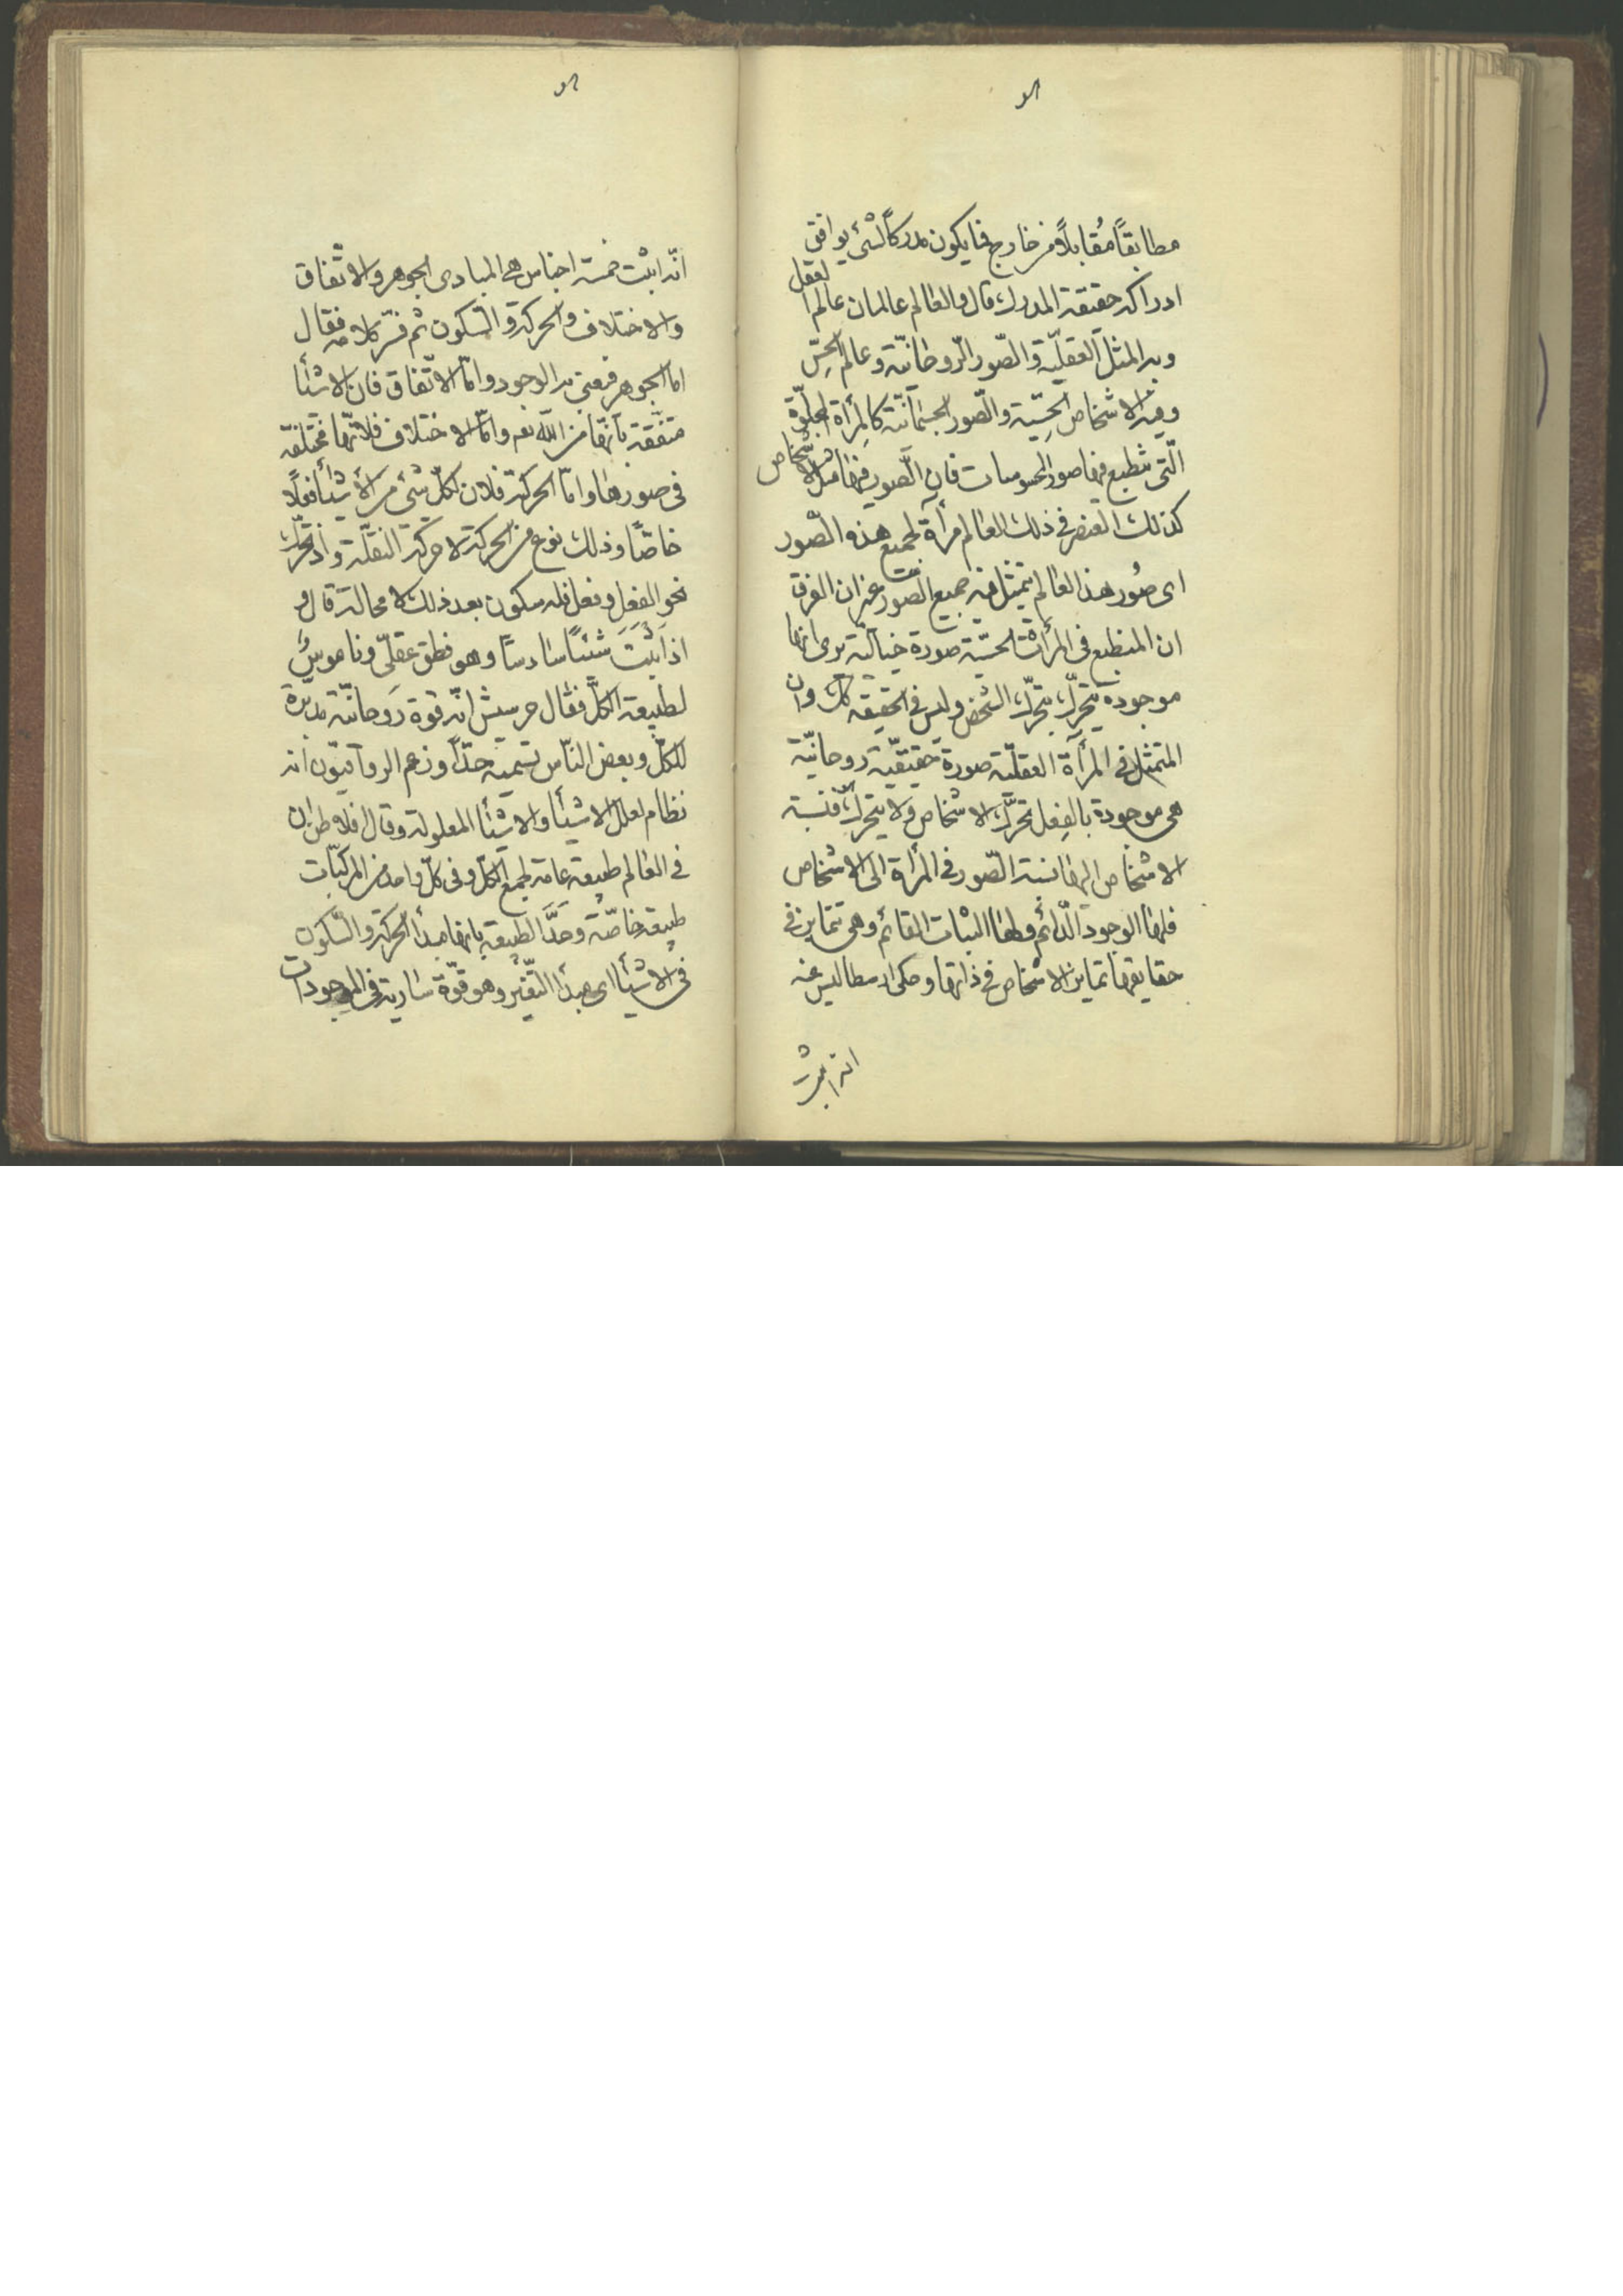 مطابقاً مُقابلاً من خارج فما يكون مدركاً لشئ يوافق
ادراكه حقيقة المدرك قال والعالم عالمان عالم العقل
وفيه المثل العقليّة والصّور الرّوحانيّة وعالم الحِسّ
وفيه الاشخاص الحِسّية والصّور الجسمانيّة كالمِرأة المجلوّة
الّتى تنطبع فيها صور المحسوسات فان الصّور فيها مثل الاشخاص
كذلك العنصر فى ذلك العالم مرأة لجميع هذه الصّور
اى صُور هذا العالم يتمثل فيه جميع الصّور غير ان الفرق
ان المنطبع فى المرأة الحسّية صورة خياليّة يرى انها
موجودة يتحرّك بتحرّك الشخص وليس فى الحقيقة كك وان
المتمثل فى المرأة العقليّة صورة حقيقيّة روحانيّة
هى موجودة بالفِعل تحرّك الاشخاص ولا يتحرّك فنسبة
الاشخاص اليها نسبة الصّور فى المرأة الى الاشخاص
فلها الوجود الدّائم ولها الثبات القائم وهى تتمايز فى
حقايقها تمايز الاشخاص فى ذاتها وحكى ارسطاليس عنه
انه اثبت
انّه اثبت خمسة اجناس هى المبادى الجوهر والاتّفاق
والاختلاف والحركة والسّكون ثم فسّر كلامه فقال
امّا الجوهر فيعنى به الوجود وامّا الاتّفاق فان الاشيأ
متفّقة بأنّها من اللّه تعم وامّا الاختلاف فلانّها مختلفة
فى صورها وامّا الحركة فلان لكلّ شئ من الأشيأ فعلاً
خاصّاً وذلك نوع من الحركة لا حركة النقلة واذ تحرّك
نحو الفعل وفعل فله سكون بعد ذلك لا محالة قال و
اذا اَثْبَتَ شيئاً سادساً وهو نطق عقلىّ وناموسٌ
لطبيعة الكلّ فقال جرسيش انّه قوة رَوحانيّة مدبّرة
للكلّ وبعض النّاس تسميه جدّاً وزعم الرواقيّون انه
نظام لعلل الاشيأ والاشيأ المعلولة وقال افلاطن ان
فى العالم طبيعة عامة لجميع الكلّ وفى كلّ واحد من المركبّات
طبيعة خاصّة وحَدَّ الطبيعة بانها مبدأ الحركة والسّكون
فى الاشيأ اى مبدأ التغّير وهو قوّة سارية فى الموجودات